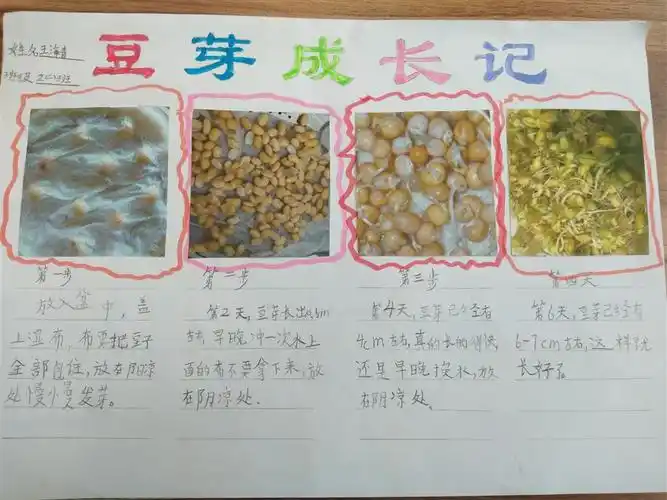 豆芽成长记
姓名王海
班级 二(一)班
第一步
放入盆中,盖
上湿布,布要把豆子
全部包住,放在阴凉
处慢慢发芽。
第二步
第2天,豆芽长出0.5cm
左右,早晚冲一次水上
面的布不要拿下来,放
在阴凉处.
第三步
第4天,豆芽已经有
4cm左右,真的长的得很
还是早晚换水,放
在阴凉处。
第四天
第6天,豆芽已经有
6-7cm左右,这样就
长好了